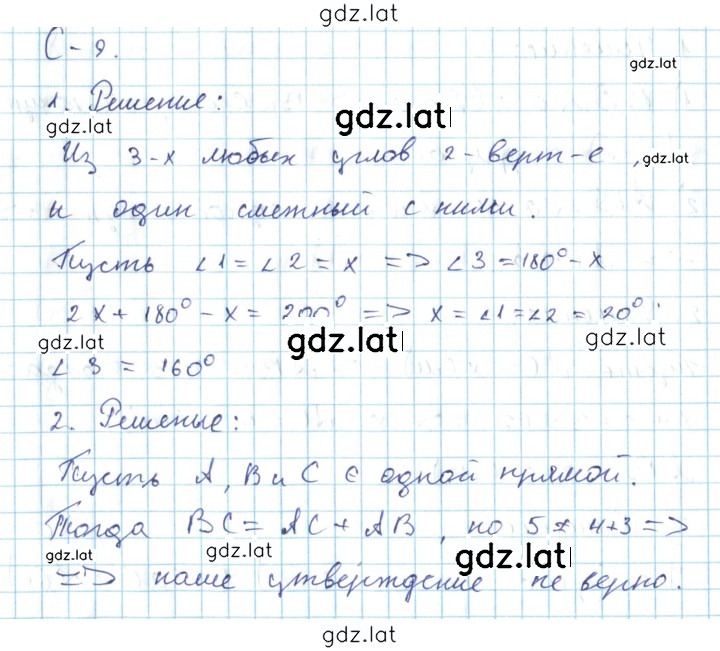 gdz.lat
С-9.
gdz.lat
1. Решение:
gdz.lat
gdz.lat
Из 3-х любых углов 2-верт-е,
gdz.lat
и один смежный с ними.
Пусть ∠1=∠2=x => ∠3=180°-x
2x+180°-x=200° => x=∠1=∠2=20°.
gdz.lat
gdz.lat
gdz.lat
∠3=160°
2. Решеные:
Пусть A, B и C ∈ одной прямой.
Тогда BC=AC+AB, но 5≠4+3 =>
gdz.lat
gdz.lat
gdz.lat
=> наше утверждение не верно.
gdz.lat